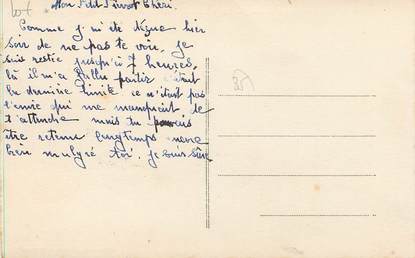 Mon Petit Pierrot Chéri.
Comme j'ai été déçue hier
soir de ne pas te voir, je
suis restée jusqu'à 7 heures,
là il m'a fallu partir c'était
la dernière limite ce n'était pas
l'envie qui me manquait de
t'attendre mais tu pouvais
être retenu longtemps
bien malgré toi. je suis sûre